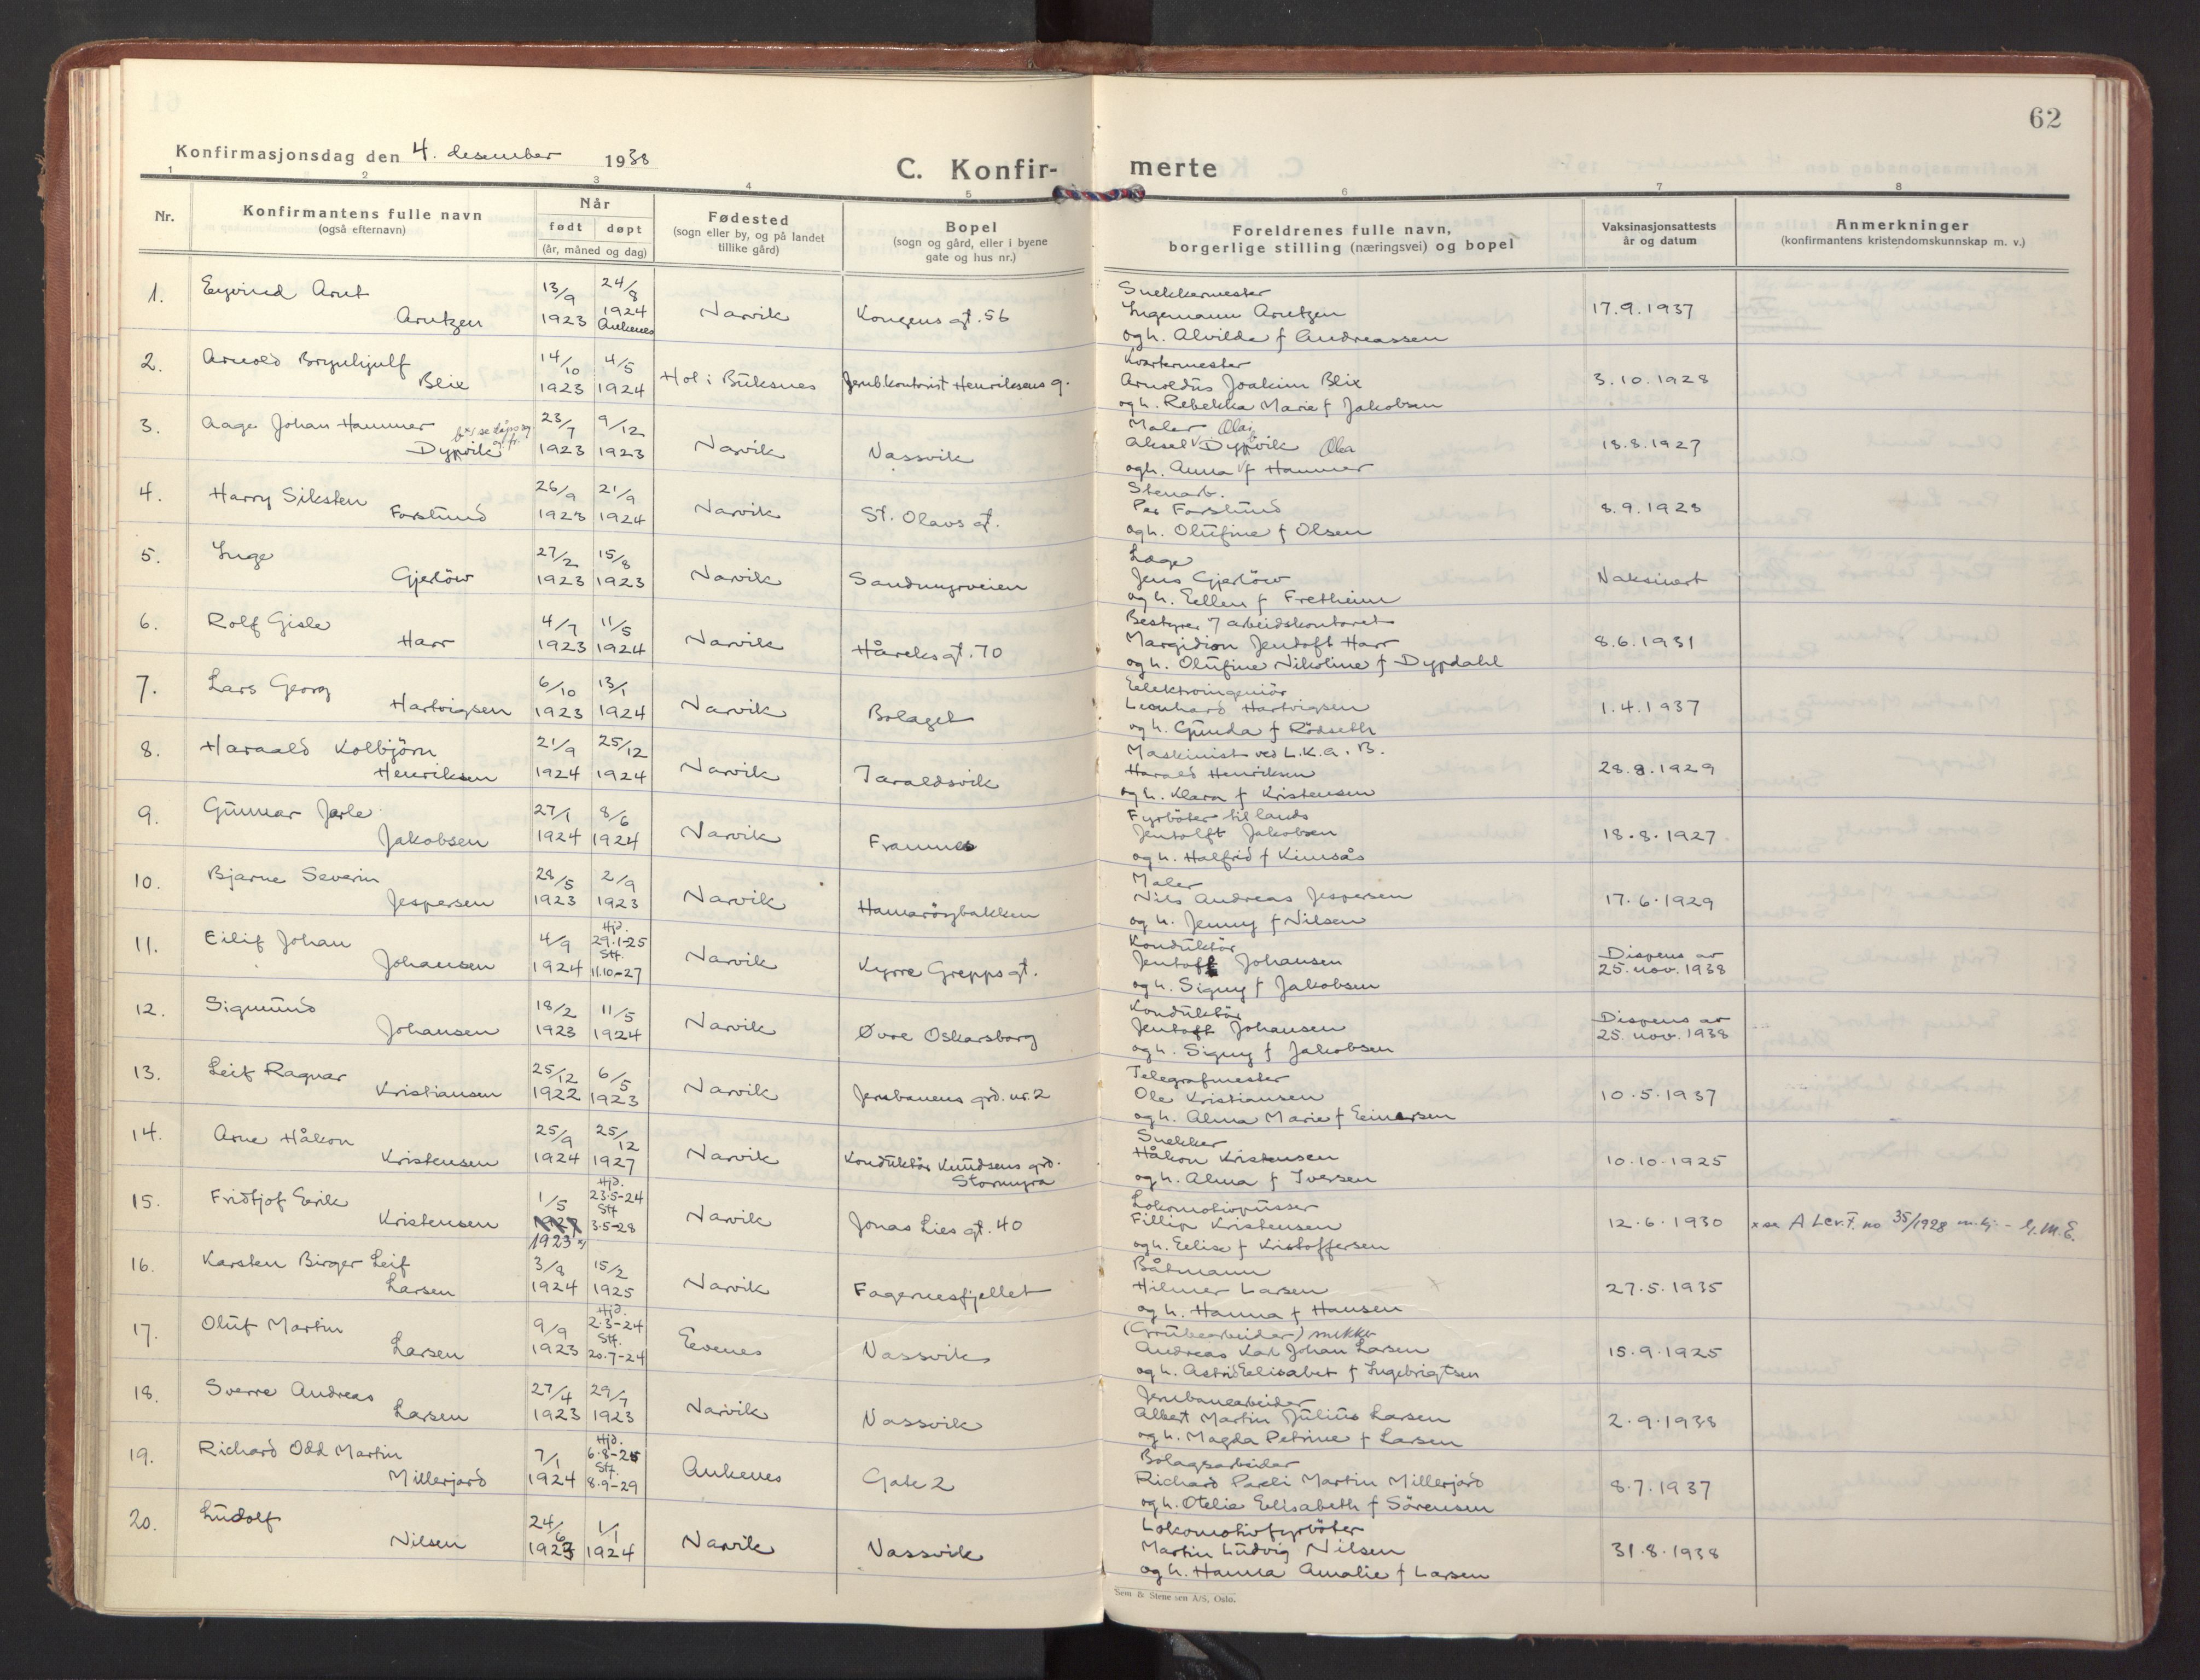 62
Konfirmasjonsdag den 4. desember 1938
C. Konfirmerte
1 2 3 4 5 6 7 8
Nr.
Konfirmantens fulle navn
(også efternavn)
Når
født døpt
(år, måned og dag)
Fødested
(sogn eller by, og på landet
tillike gård)
Bopel
(sogn og gård, eller i byene
gate og hus nr.)
Foreldrenes fulle navn,
borgerlige stilling (næringsvei) og bopel
Vaksinasjonsattests
år og datum
Anmerkninger
(konfirmantens kristendomskunnskap m. v.)
1. Eyvind Arnt Arntzen 13/9 1923 24/8 1924 Ankenes Narvik Kongens gt. 56
Snekkermester
Ingemann Arntzen
og h. Alvilde f Andreassen
17.9.1937
2. Arnold Brynhjulf Blix 14/10 1923 4/5 1924 Hol i Buksnes Jernb.kontorist Henriksens g.
Kvartermester
Arnoldus Joakim Blix
og h. Rebekka Marie f Jakobsen
3.10.1928
3. Aage Johan Hammer Dypvik 23/7 1923 9/12 1923 Narvik Vassvik
Maler Olai
Aksel Dypvik
og h. Anna f Hammer
18.8.1927
4. Harry Siksten Forslund 26/9 1923 21/9 1924 Narvik St. Olavs gt.
Stenarb.
Per Forslund
og h. Olufine f Olsen
8.9.1928
5. Inge Gjerlöw 27/2 1923 15/8 1923 Narvik Sandmyrveien
Lege
Jens Gjerlöw
og h. Eellen f Fretheim
Vaksinert
6. Rolf Gisle Harr 4/7 1923 11/5 1924 Narvik Håreks gt. 70
Bestyrer 7 arbeidskontoret
Margidion Jentoft Harr
og h. Olufine Nikoline f Dypdahl
8.6.1931
7. Lars Georg Hartvigsen 6/10 1923 13/1 1924 Narvik Bolaget
Eelektroingeniör
Leonhard Hartvigsen
og h. Gunda f Rödseth
1.4.1937
8. Haraald Kolbjörn Henriksen 21/9 1924 25/12 1924 Narvik Taraldsvik
Maskinist ved L.K.A.B.
Harald Henriksen
og h. Klara f Kristensen
28.8.1929
9. Gunnar Jarle Jakobsen 27/1 1924 8/6 1924 Narvik Framnes
Fyrböter til lands
Jentolft Jakobsen
og h. Halfrid f Kimsås
18.8.1927
10. Bjarne Severin Jespersen 28/5 1923 2/9 1923 Narvik Hamaröybakken
Maler
Nils Andreas Jespersen
og h. Jenny f Nilsen
17.6.1929
11. Eilif Johan Johansen 4/9 1924 Hjd. 29.1-25 Stf. 11.10-27 Narvik Kyrre Grepps gt.
Konduktör
Jentoft Johansen
og h. Signy f Jakobsen
Dispens av
25. nov. 1938
12. Sigmund Johansen 18/2 1923 11/5 1924 Narvik Øvre Oskarsborg
Konduktör
Jentoft Johansen
og h. Signy f Jakobsen
Dispens av
25. nov. 1938
13. Leif Ragnar Kristiansen 25/12 1922 6/5 1923 Narvik Jernbanens grd. nr. 2
Telegrafmester
Ole Kristiansen
og h. Alma Marie f Eeinarsen
10.5.1937
14. Arne Håkon Kristensen 25/9 1924 25/12 1927 Narvik Konduktör Knudsens grd. Stormyra
Snekker
Håkon Kristensen
og h. Alma f Iversen
10.10.1925
15. Fridtjof Eerik Kristensen 1/5 1927 1923 x) Hjd. 23.5-24 Stf. 3.5-28 Narvik Jonas Lies gt. 40
Lokomotivpusser
Fillip Kristensen
og h. Eelise f Kristoffersen
12.6.1930 x se A Lev.F. no 35/1928 m.kj. - G.M.E.
16. Karsten Birger Leif Larsen 3/8 1924 15/2 1925 Narvik Fagernesfjellet
Båtmann
Hilmer Larsen
og h. Hanna f Hansen
27.5.1935
17. Oluf Martin Larsen 9/9 1923 Hjd. 2.3-24 Stf. 20.7-24 Eevenes Vassvik
(Grubearbeider) snekker
Andreas Karl Johan Larsen
og h. Astrid Eelisabet f Ingebrigtsen
15.9.1925
18. Sverre Andreas Larsen 27/4 1923 29/7 1923 Narvik Vassvik
Jernbanearbeider
Albert Martin Julius Larsen
og h. Magda Petrine f Larsen
2.9.1938
19. Richard Odd Martin Millerjord 7/1 1924 Hjd. 6.8-25 Stf. 8.9-29 Ankenes Gate 2
Bolagsarbeider
Richard Pareli Martin Millerjord
og h. Otelie Eelisabeth f Sörensen
8.7.1937
20. Ludolf Nilsen 24/6 1923 1/1 1924 Narvik Vassvik
Lokomotivfyrböter
Martin Ludvig Nilsen
og h. Hanna Amalie f Larsen
31.8.1938
Sem & Stenersen A/S, Oslo.